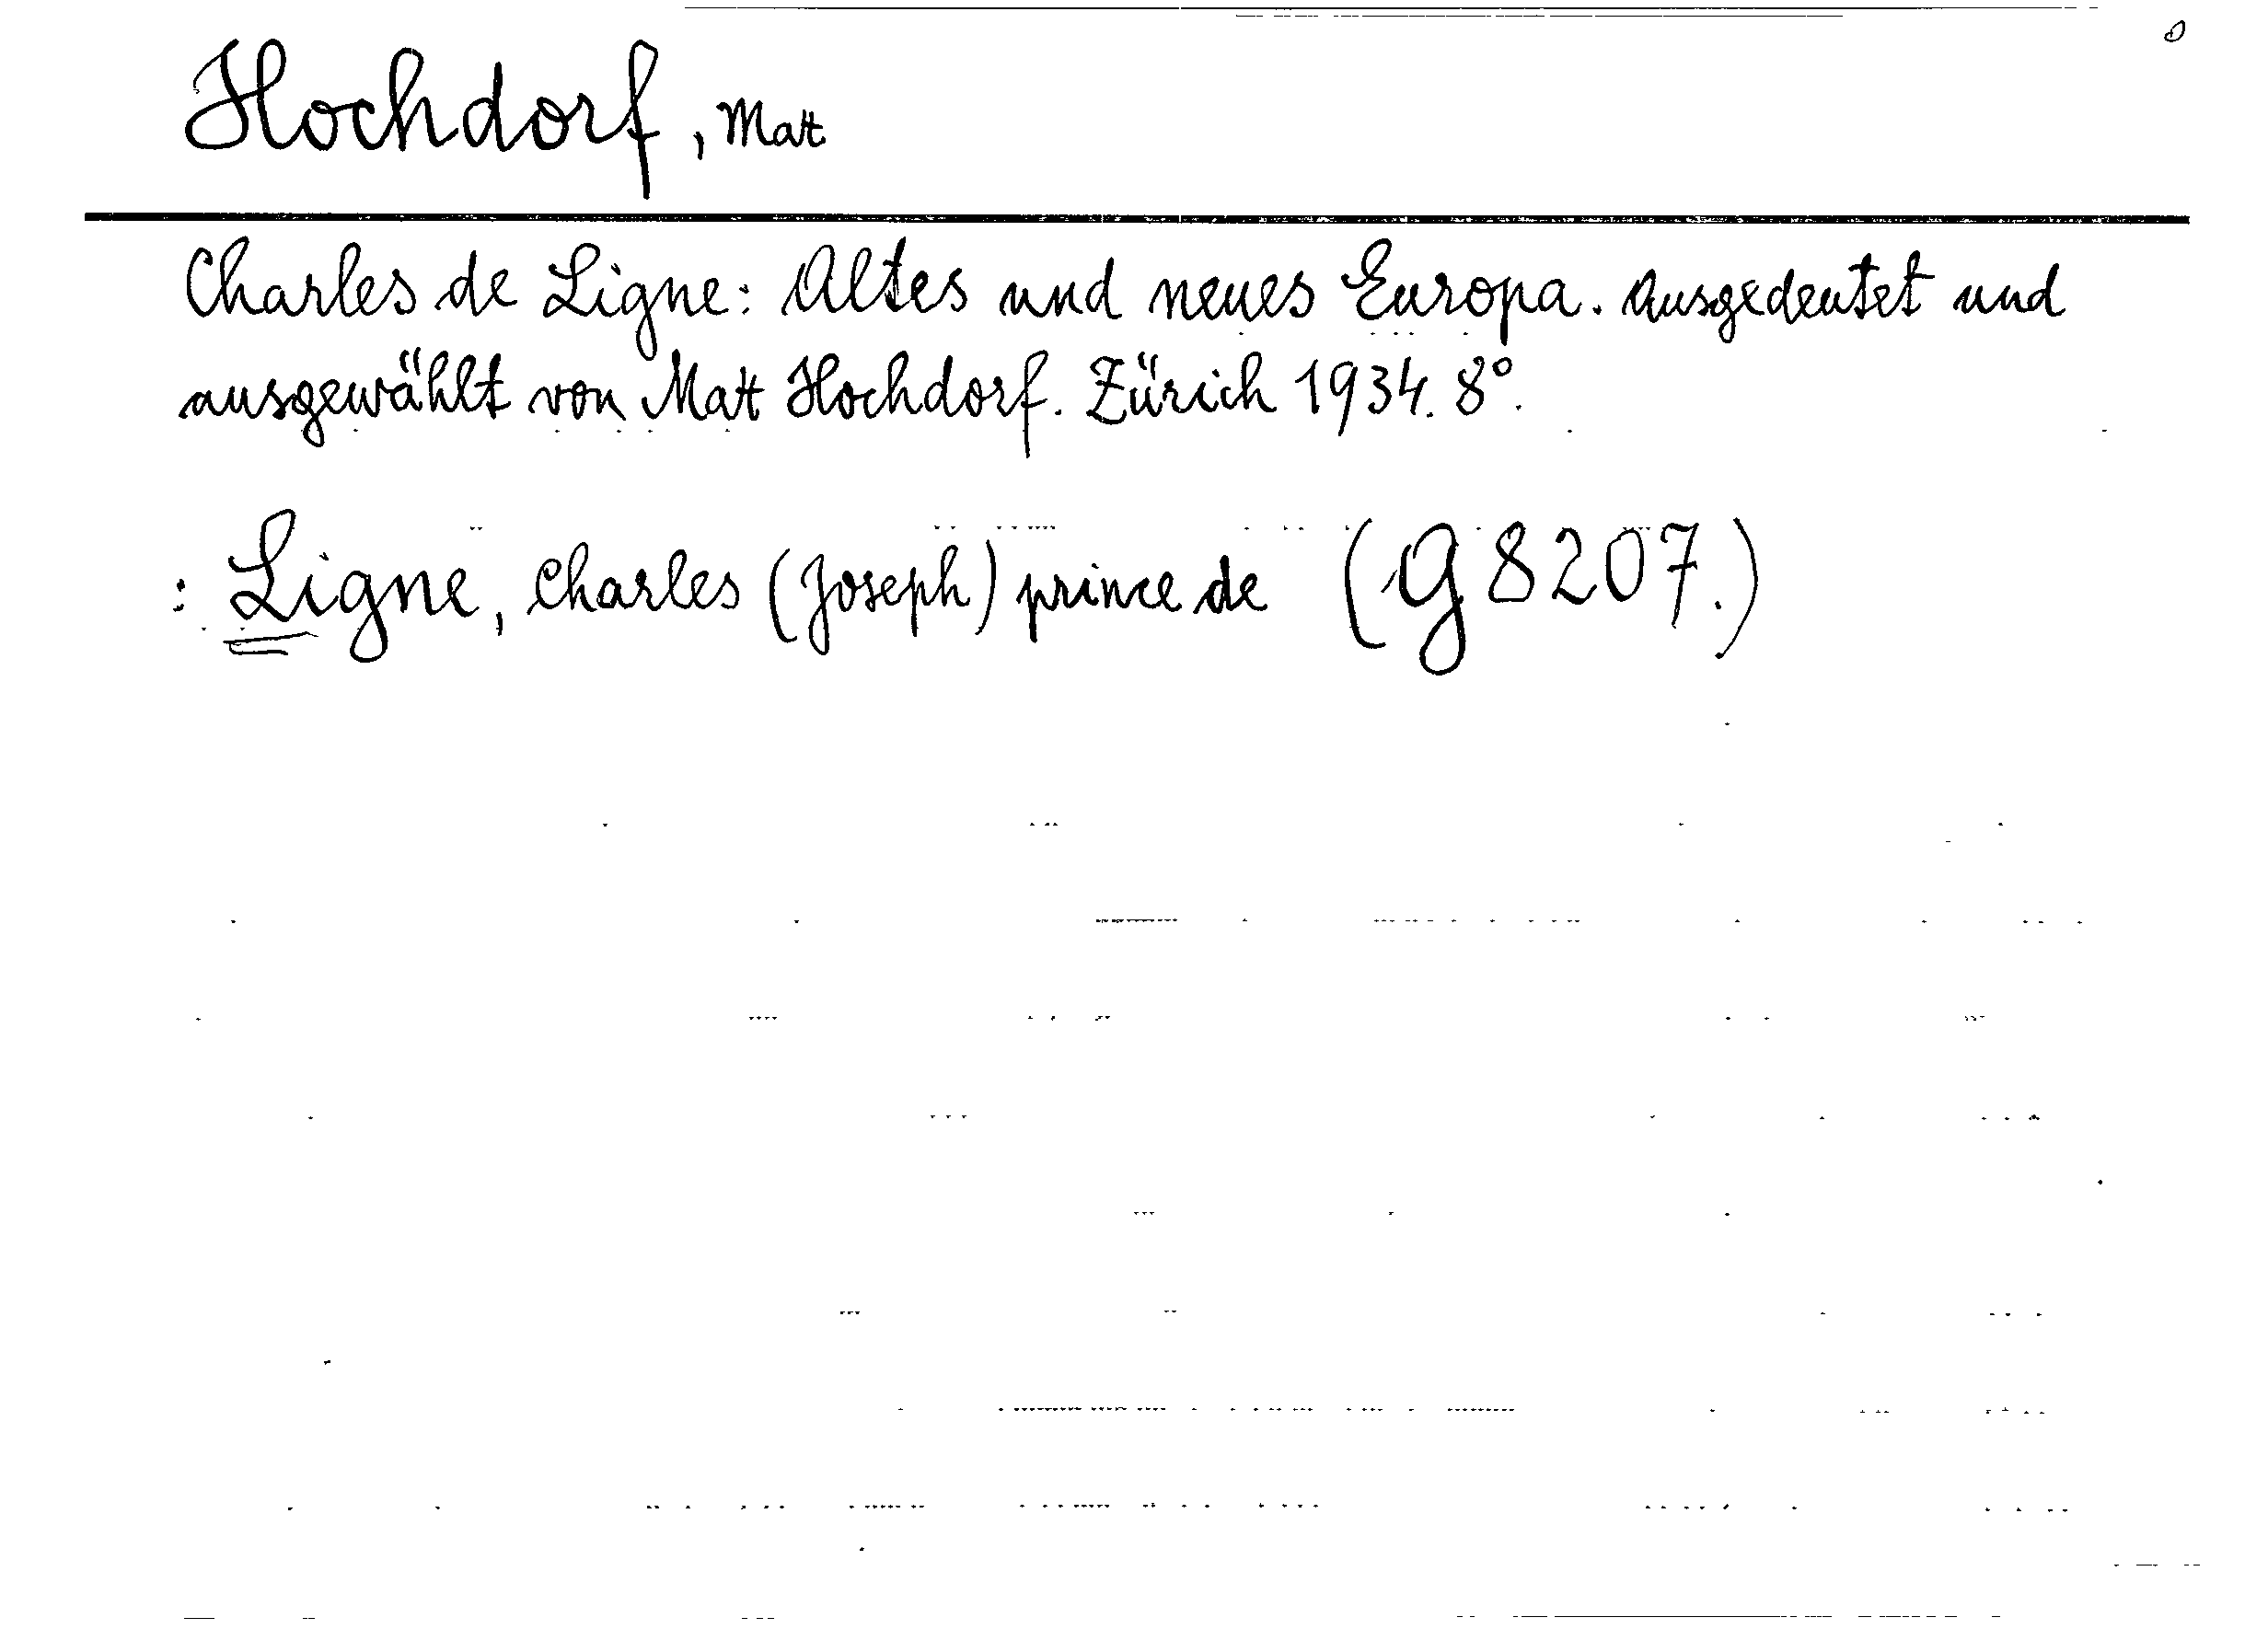 Hochdorf, Matt
Charles de Ligne: Altes und neues Europa. Ausgedeutet und
ausgewählt von Matt Hochdorf. Zürich 1934. 8°.
: Ligne, Charles (Joseph) prince de (G 8207.)